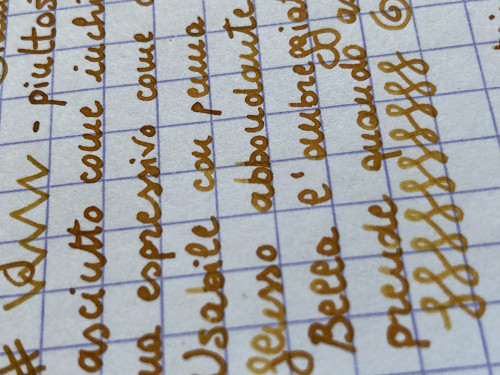 - piuttos
asciutto come inchi
ua espressivo come
Usabile con penna
flusso abbondante
Bella l'ombreggiat
prende quando